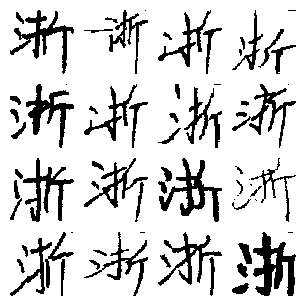 浙 浙 浙 浙
浙 浙 浙 浙
浙 浙 浙 浙
浙 浙 浙 浙